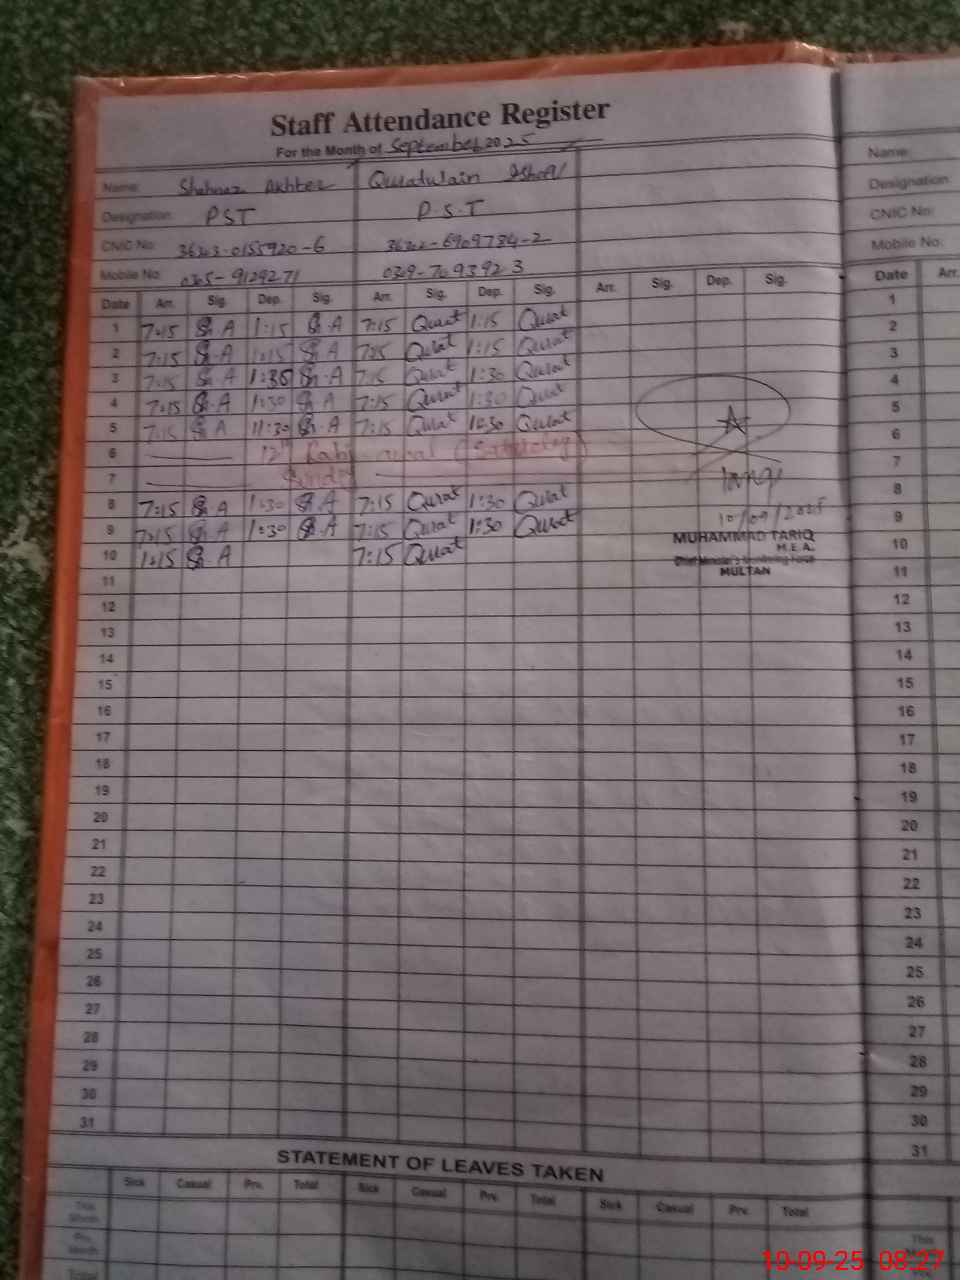 Staff Attendance Register
For the Month of September 2025
Name: Shahnaz Akhter Quratulain Name:
Designation: PST P.S.T Designation
CNIC No: 36303-0155920-6 CNIC No:
Mobile No: Mobile No:
Date Arr. Sig. Dep. Sig. Arr. Sig. Dep. Sig. Arr. Sig. Dep. Sig. Date Arr.
1 7:15 Sh.A 1:15 Sh.A 7:15 Qurat 1:15 Qurat 1
2 7:15 Sh.A 1:15 Sh.A 7:15 Qurat 1:15 Qurat 2
3 7:15 Sh.A 1:30 Sh.A 7:15 Qurat 1:30 Qurat 3
4 7:15 Sh.A 1:30 Sh.A 7:15 Qurat 1:30 Qurat 4
5 7:15 Sh.A 11:30 Sh.A 7:15 Qurat Qurat 5
6 12th Rabi (Saturday) 6
7 Sunday 7
8 7:15 Sh.A 1:30 Sh.A 7:15 Qurat 1:30 Qurat 8
9 7:15 Sh.A 1:30 Sh.A 7:15 Qurat 1:30 Qurat 9
10 Sh.A 7:15 Qurat 10
10/09/2025
MUHAMMAD TARIQ
M.E.A.
Chief Minister's Monitoring Force
MULTAN
11 11
12 12
13 13
14 14
15 15
16 16
17 17
18 18
19 19
20 20
21 21
22 22
23 23
24 24
25 25
26 26
27 27
28 28
29 29
30 30
31 31
STATEMENT OF LEAVES TAKEN
Sick Casual Prv. Total Sick Casual Prv. Total Sick Casual Prv. Total
This Month This
Prv. Month
Total
10-09-25 08:27